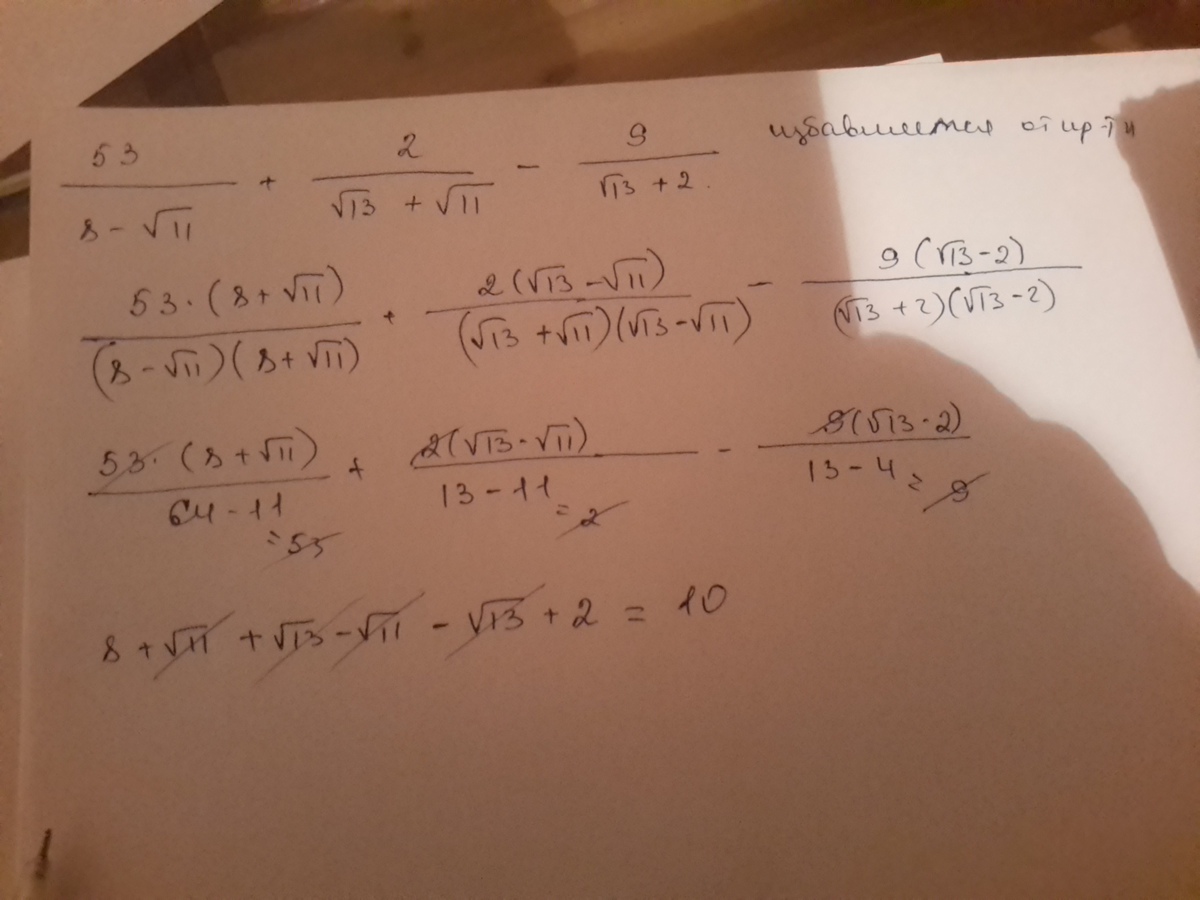 53/(8 - √11) + 2/(√13 + √11) - 9/(√13 + 2). избавимся от ир-ти
53·(8 + √11)/((8 - √11)(8 + √11)) + 2(√13 - √11)/((√13 + √11)(√13 - √11)) - 9(√13 - 2)/((√13 + 2)(√13 - 2))
53·(8 + √11)/(64 - 11 = 53) + 2(√13 - √11)/(13 - 11 = 2) - 9(√13 - 2)/(13 - 4 = 9)
8 + √11 + √13 - √11 - √13 + 2 = 10